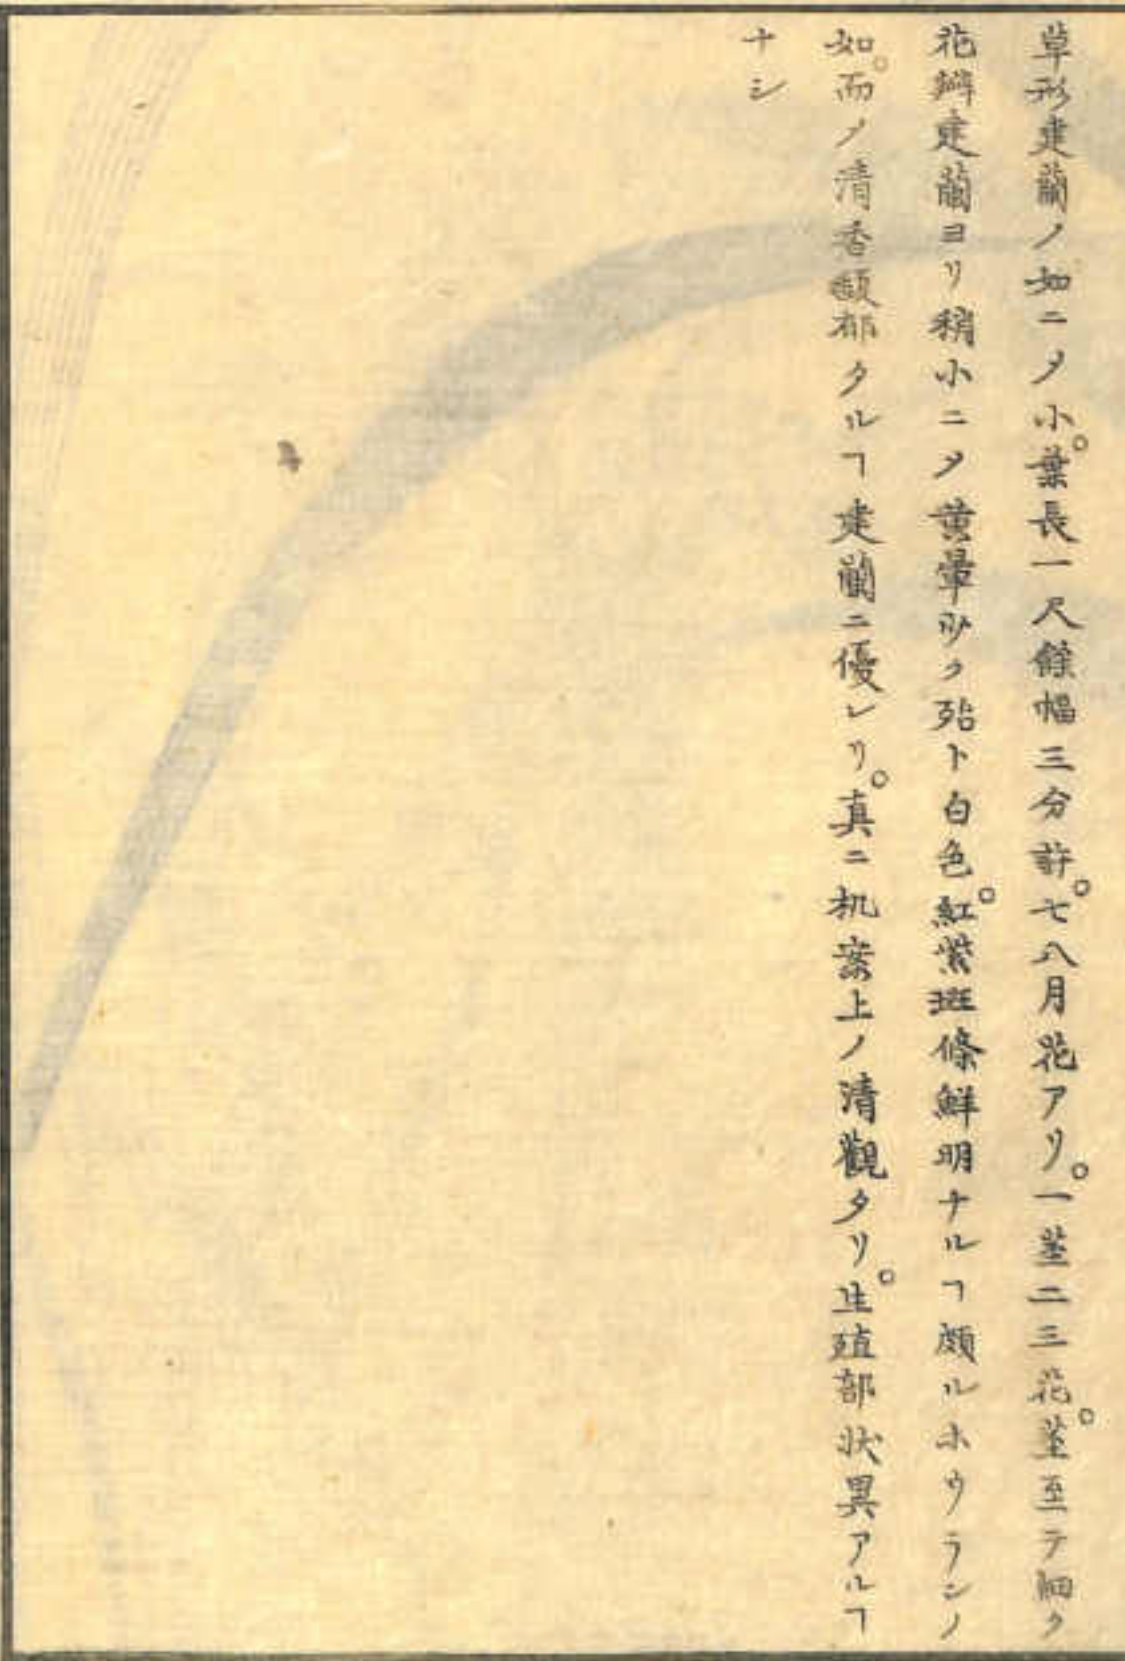 草形建蘭ノ如ニ〆小。葉長一尺餘幅三分許。七八月花アリ。一莖二三花。莖至テ細ク
花瓣建蘭ヨリ稍小ニ〆黄暈少ク殆ト白色。紅紫斑條鮮明ナルヿ頗ルホウランノ
如。而〆清香馥郁タルヿ建蘭ニ優レリ。真ニ机案上ノ清觀タリ。生殖部状異アルヿ
ナシ